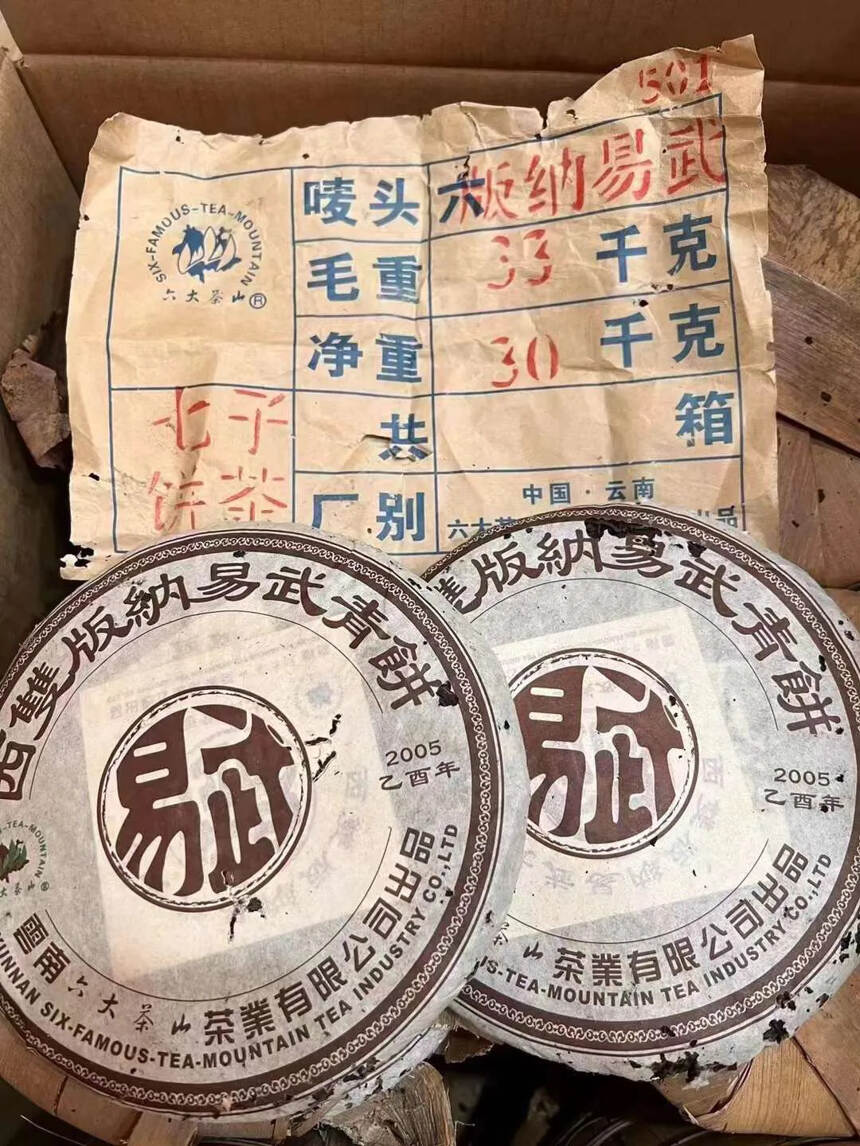 501
SIX-FAMOUS-TEA-MOUNTAIN
六大茶山®
唛头 六版纳易武
毛重 33 千克
净重 30 千克
七子
饼茶
共 箱
厂别
中国·云南
六大茶 出品
西雙版納易武青餅
易武
2005
乙酉年
TEA-MOUNTAIN
大茶山®
雲南六大茶山茶業有限公司出品
YUNNAN SIX-FAMOUS-TEA-MOUNTAIN TEA INDUSTRY CO.,LTD
雙版納易武青餅
易武
2005
乙酉年
茶山茶業有限公司出品
US-TEA-MOUNTAIN TEA INDUSTRY CO.,LTD